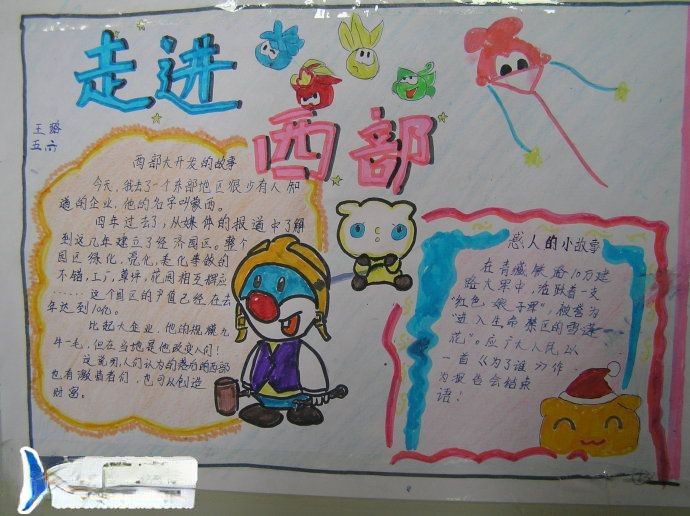 走进
西部
王璐
五六
西部大开发的故事
今天,我去了一个东部地区很少有人知
道的企业,他的名字叫蒙西。
四年过去了,从媒体的报道中了解
到这几年建立了经济园区。整个
园区绿化,亮化,美化等做的
不错,工厂,草坪,花园相互辉应
……这个园区的产值已经在去
年达到10亿。
比起大企业,他的规模九
牛一毛,但在当地是他改变人们!
这说明,人们认为的落后的西部
也有激昂者们,也可以创造
财富。
感人的小故事
在青藏铁路10万建
路大军中,活跃着一支
"红色娘子军",被誉为
"进入生命禁区的雪莲
花"。应广大人民以
一首《为了谁》作
为报告会结束
语!